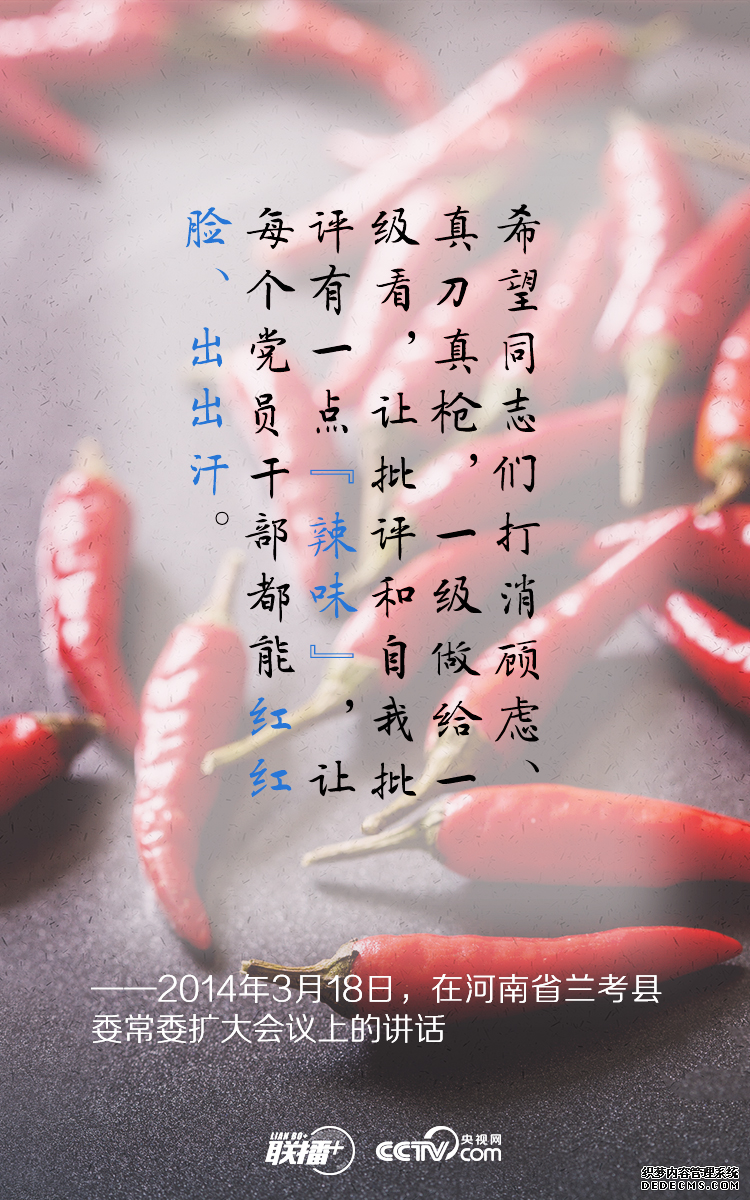 希望同志们打消顾虑、
真刀真枪，一级做给一
级看，让批评和自我批
评有一点『辣味』，让
每个党员干部都能红红
脸、出出汗。
——2014年3月18日，在河南省兰考县
委常委扩大会议上的讲话
LIAN BO+
联播+
CCTV.com 央视网
织梦内容管理系统
DEDECMS.COM